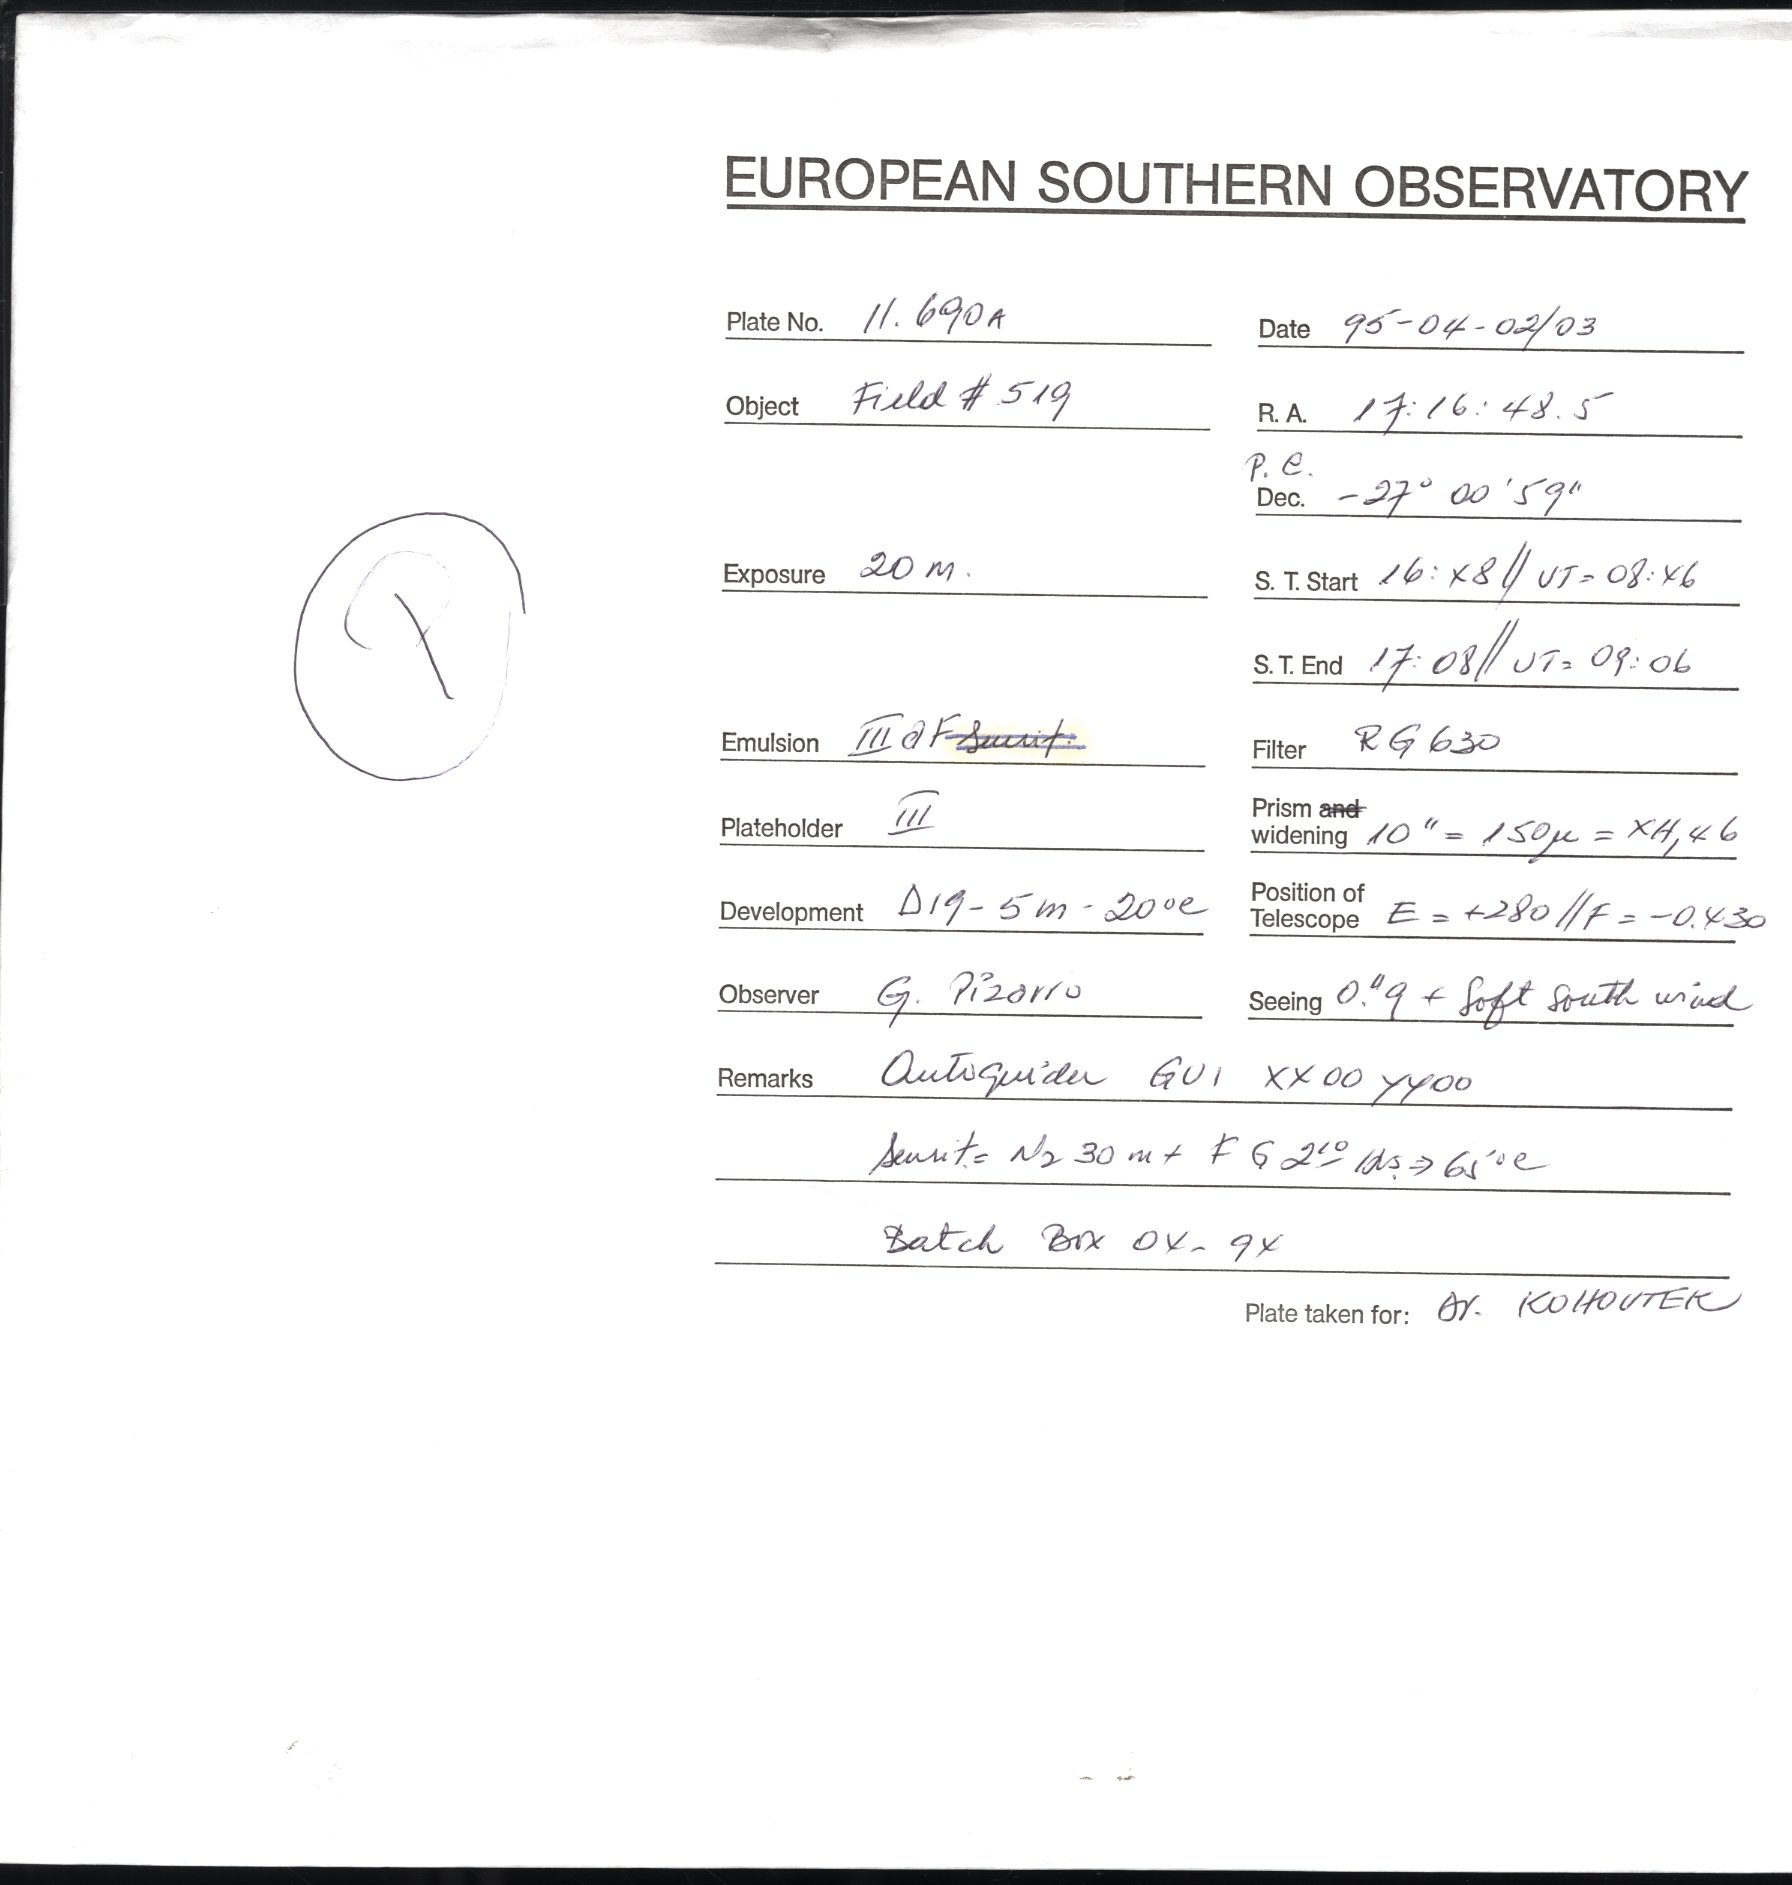 EUROPEAN SOUTHERN OBSERVATORY
Plate No. 11.690A
Date 95-04-02/03
Object Field # 519
R. A. 17:16:48.5
P. C.
Dec. -27° 00'59"
Exposure 20 m.
S. T. Start 16:48 // UT= 08:46
S. T. End 17:08 // UT= 09:06
Emulsion III aF Sensit.
Filter RG 630
Plateholder III
Prism and
widening 10" = 150µ =
Development D19 - 5 m - 20°C
Position of
Telescope E = +280 // F = -0.430
Observer G. Pizarro
Seeing 0."9 + Soft south wind
Remarks Autoguider GUI XX00 YY00
Sensit.= N2 30 m + F G => 65°C
Batch Box 04-94
Plate taken for: Dr. KOHOUTEK